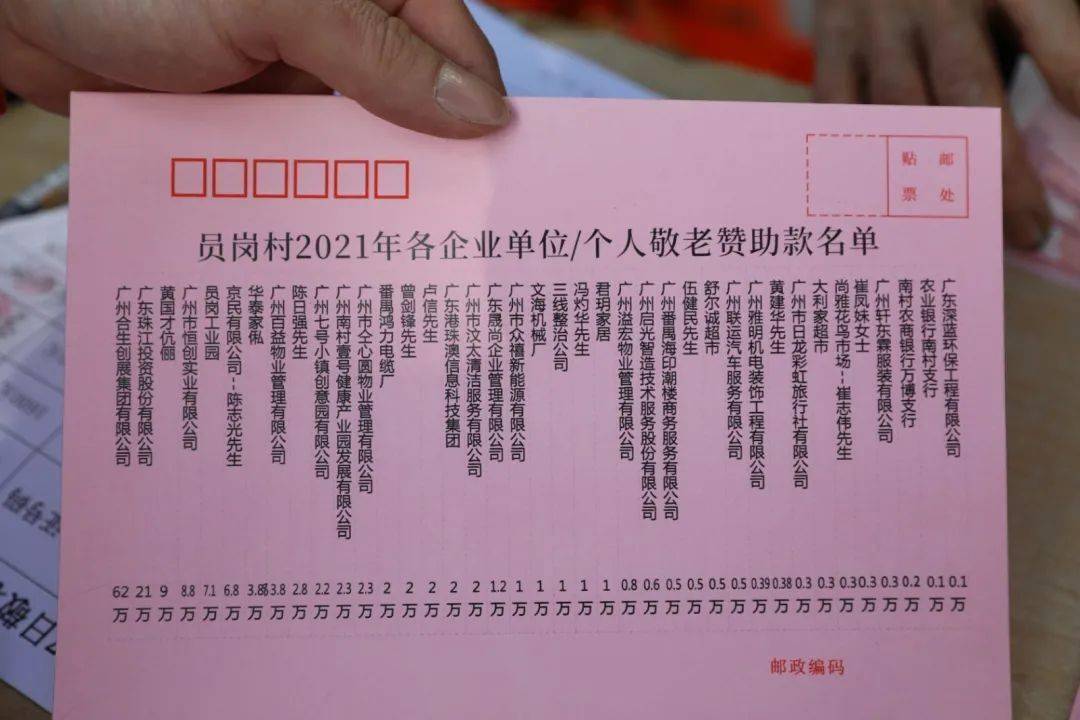 贴 邮
票 处
员岗村2021年各企业单位/个人敬老赞助款名单
广州合生创展集团有限公司 62万
广东珠江投资股份有限公司 21万
黄国才伉俪 9万
广州市恒创实业有限公司 8.8万
员岗工业园 7.1万
京民有限公司--陈志光先生 6.8万
华泰家俬 万
广州百益物业管理有限公司 3.8万
陈日强先生 2.8万
广州七号小镇创意园有限公司 2.2万
广州南村壹号健康产业园发展有限公司 2.3万
广州市仝心圆物业管理有限公司 2.3万
番禺鸿力电缆厂 2万
曾剑锋先生 2万
卢信先生 2万
广东港珠澳信息科技集团 2万
广州市汶太清洁服务有限公司 2万
广东晟尚企业管理有限公司 1.2万
广州市众禧新能源有限公司 1万
文海机械厂 1万
三线整治公司 1万
冯灼华先生 1万
君玥家居 1万
广州溢宏物业管理有限公司 0.8万
广州启光智造技术服务股份有限公司 0.6万
广州番禺海印潮楼商务服务有限公司 0.5万
伍健民先生 0.5万
舒尔诚超市 0.5万
广州联运汽车服务有限公司 0.5万
广州雅明机电装饰工程有限公司 0.39万
黄建华先生 0.38万
广州市日龙彩虹旅行社有限公司 0.3万
大利家超市 0.3万
尚雅花鸟市场--崔志伟先生 0.3万
崔凤妹女士 0.3万
广州轩东霖服装有限公司 0.3万
南村农商银行万博支行 0.2万
农业银行南村支行 0.1万
广东深蓝环保工程有限公司 0.1万
邮政编码